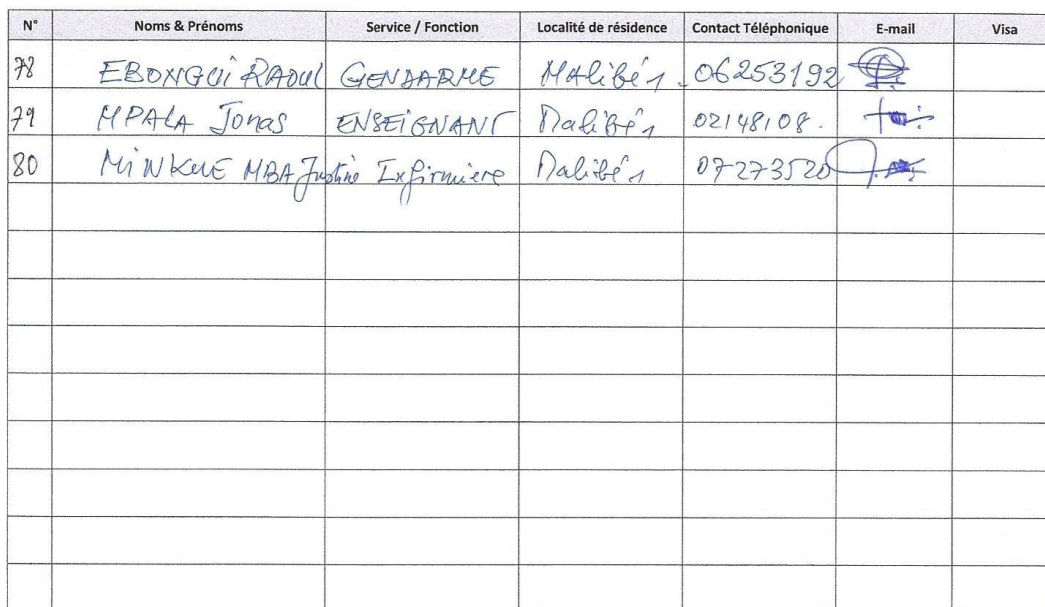 N° Noms & Prénoms Service / Fonction Localité de résidence Contact Téléphonique E-mail Visa
78 EBONGUI RAOUL GENDARME Malibé 1 06253192
79 MPALA Jonas ENSEIGNANT Malibé 1 02148108.
80 MINKUE MBA Justine Infirmiere Malibé 1 07273520